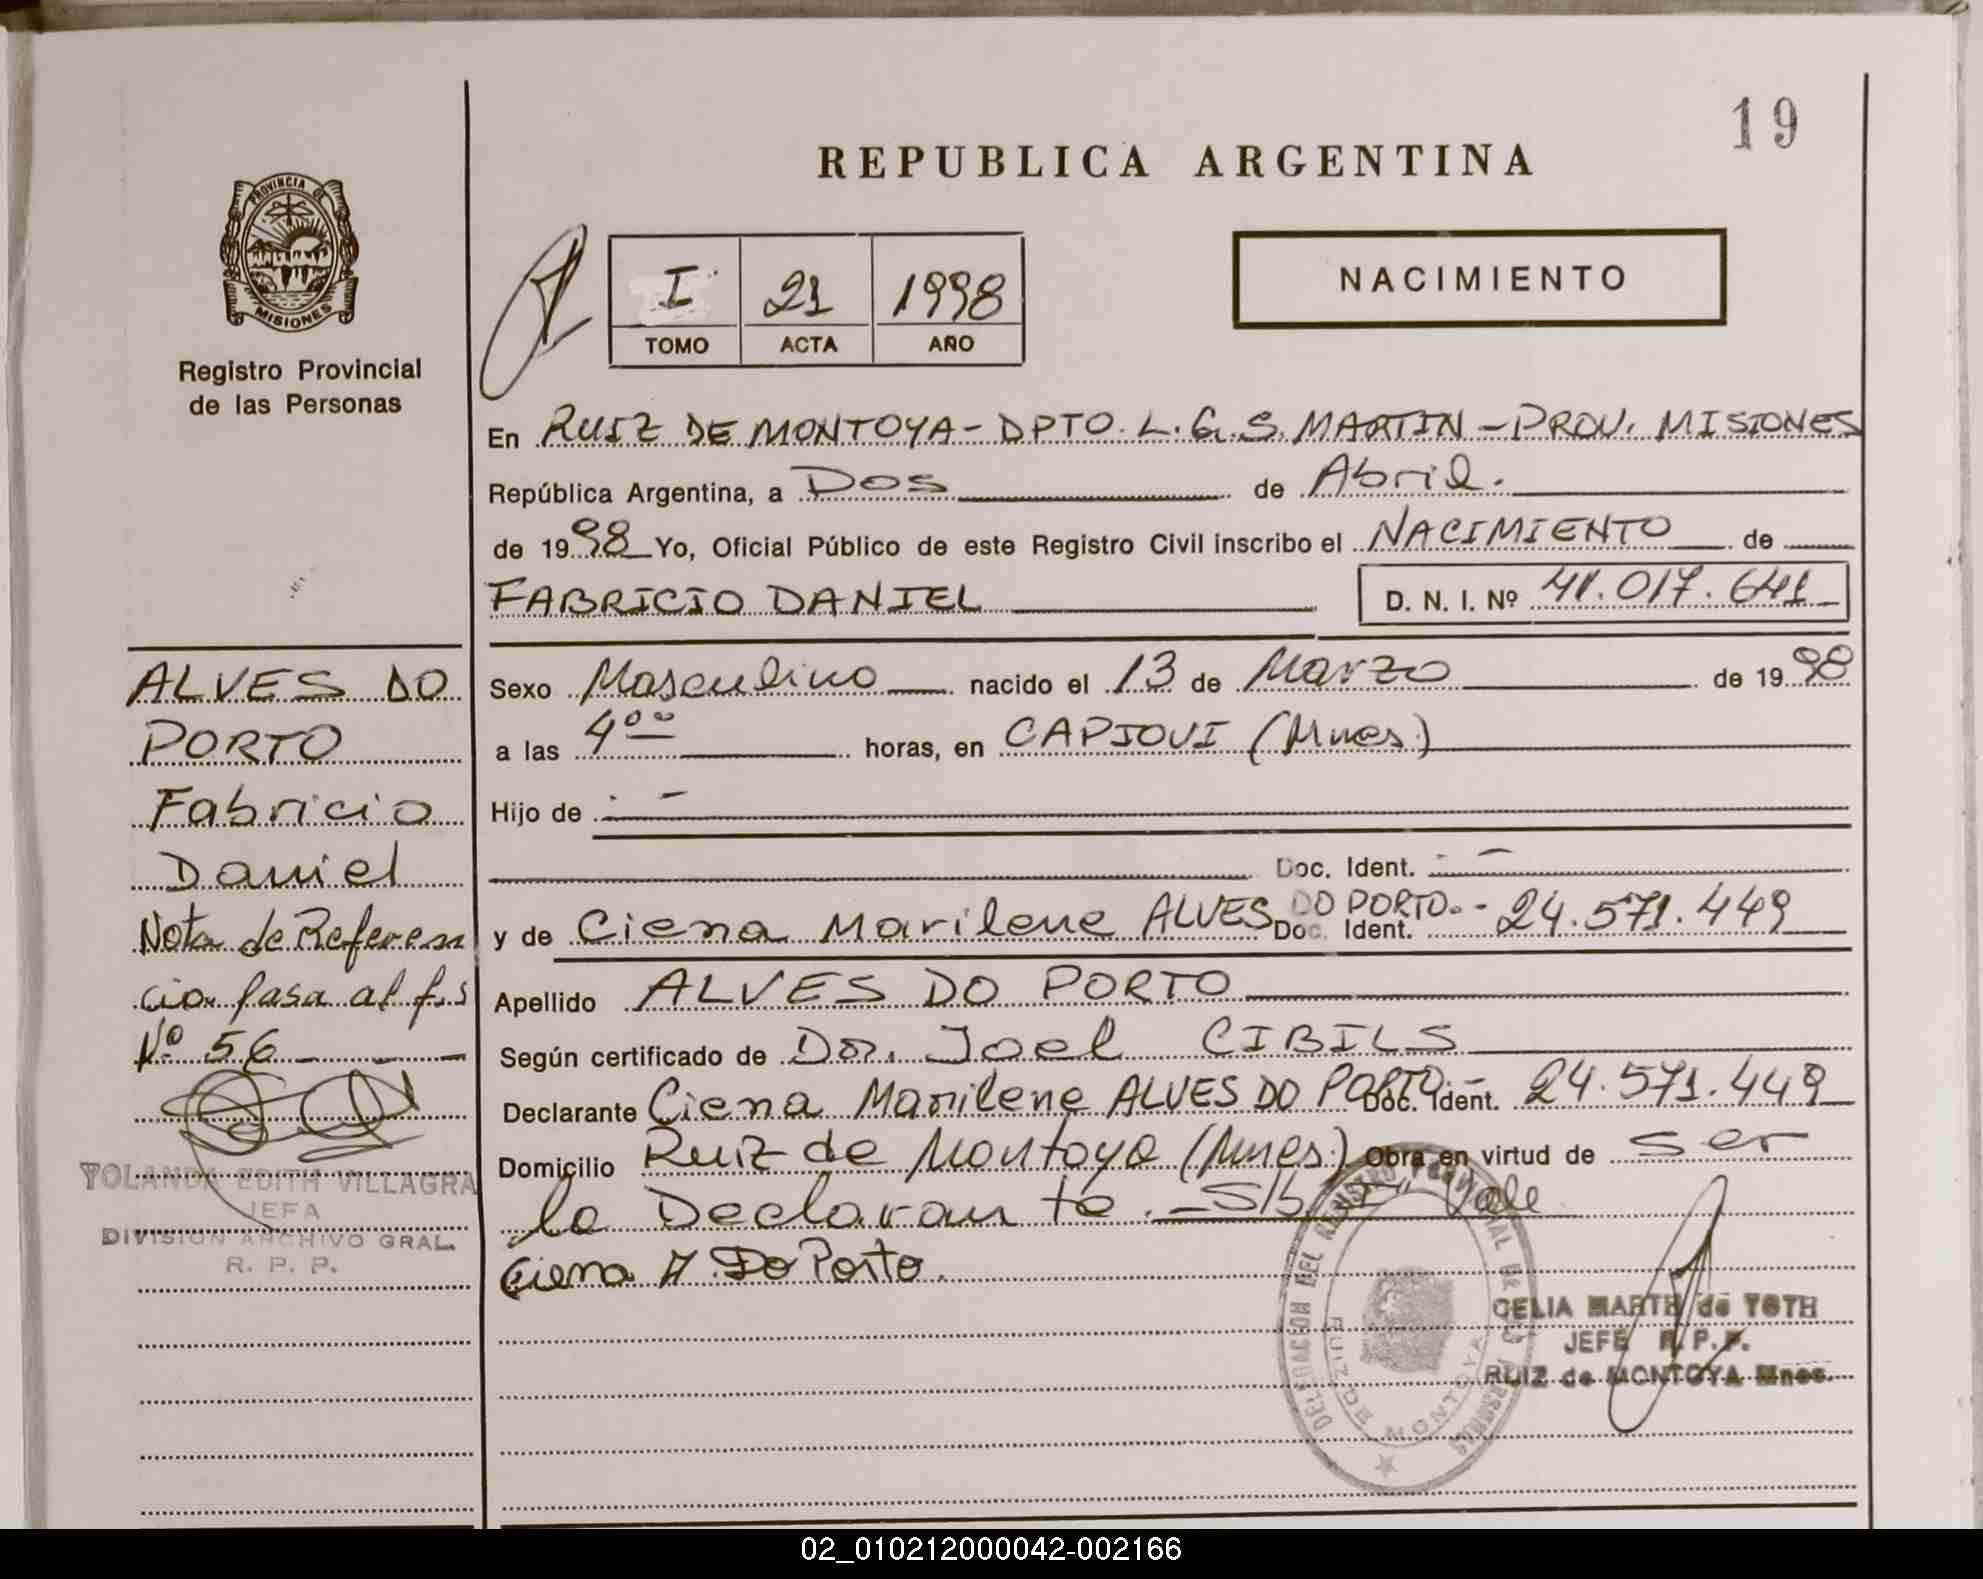 19
REPUBLICA ARGENTINA
PROVINCIA DE
MISIONES
Registro Provincial
de las Personas
I 21 1998
TOMO ACTA AÑO
NACIMIENTO
En RUIZ DE MONTOYA - DPTO. L. G. S. MARTIN - PROV. MISIONES
República Argentina, a Dos de Abril.
de 1998 Yo, Oficial Público de este Registro Civil inscribo el NACIMIENTO de
FABRICIO DANIEL D. N. I. Nº 41.017.641
Sexo Masculino nacido el 13 de Marzo de 1998
a las 4 ºº horas, en CAPIOVI (Mnes.)
Hijo de . -
Doc. Ident. . -
y de Ciena Marilene ALVES DO PORTO.- Doc. Ident. 24.571.449
Apellido ALVES DO PORTO
Según certificado de Dr. Joel CIBILS
Declarante Ciena Marilene ALVES DO PORTO.- Doc. Ident. 24.571.449
Domicilio Ruiz de Montoya (Mnes.) Obra en virtud de ser
la Declarante. - S/b Vale
Ciena A. Do Porto.
ALVES DO
PORTO
Fabricio
Daniel
Nota de Referen
cia pasa al fs
Nº 56
YOLANDA EDITH VILLAGRA
JEFA
DIVISION ARCHIVO GRAL.
R. P. P.
DELEGACION DEL REGISTRO PROVINCIAL DE LAS PERSONAS
RUIZ DE MONTOYA
CELIA MARTH de TOTH
JEFE R.P.P.
RUIZ de MONTOYA Mnes.
02_010212000042-002166